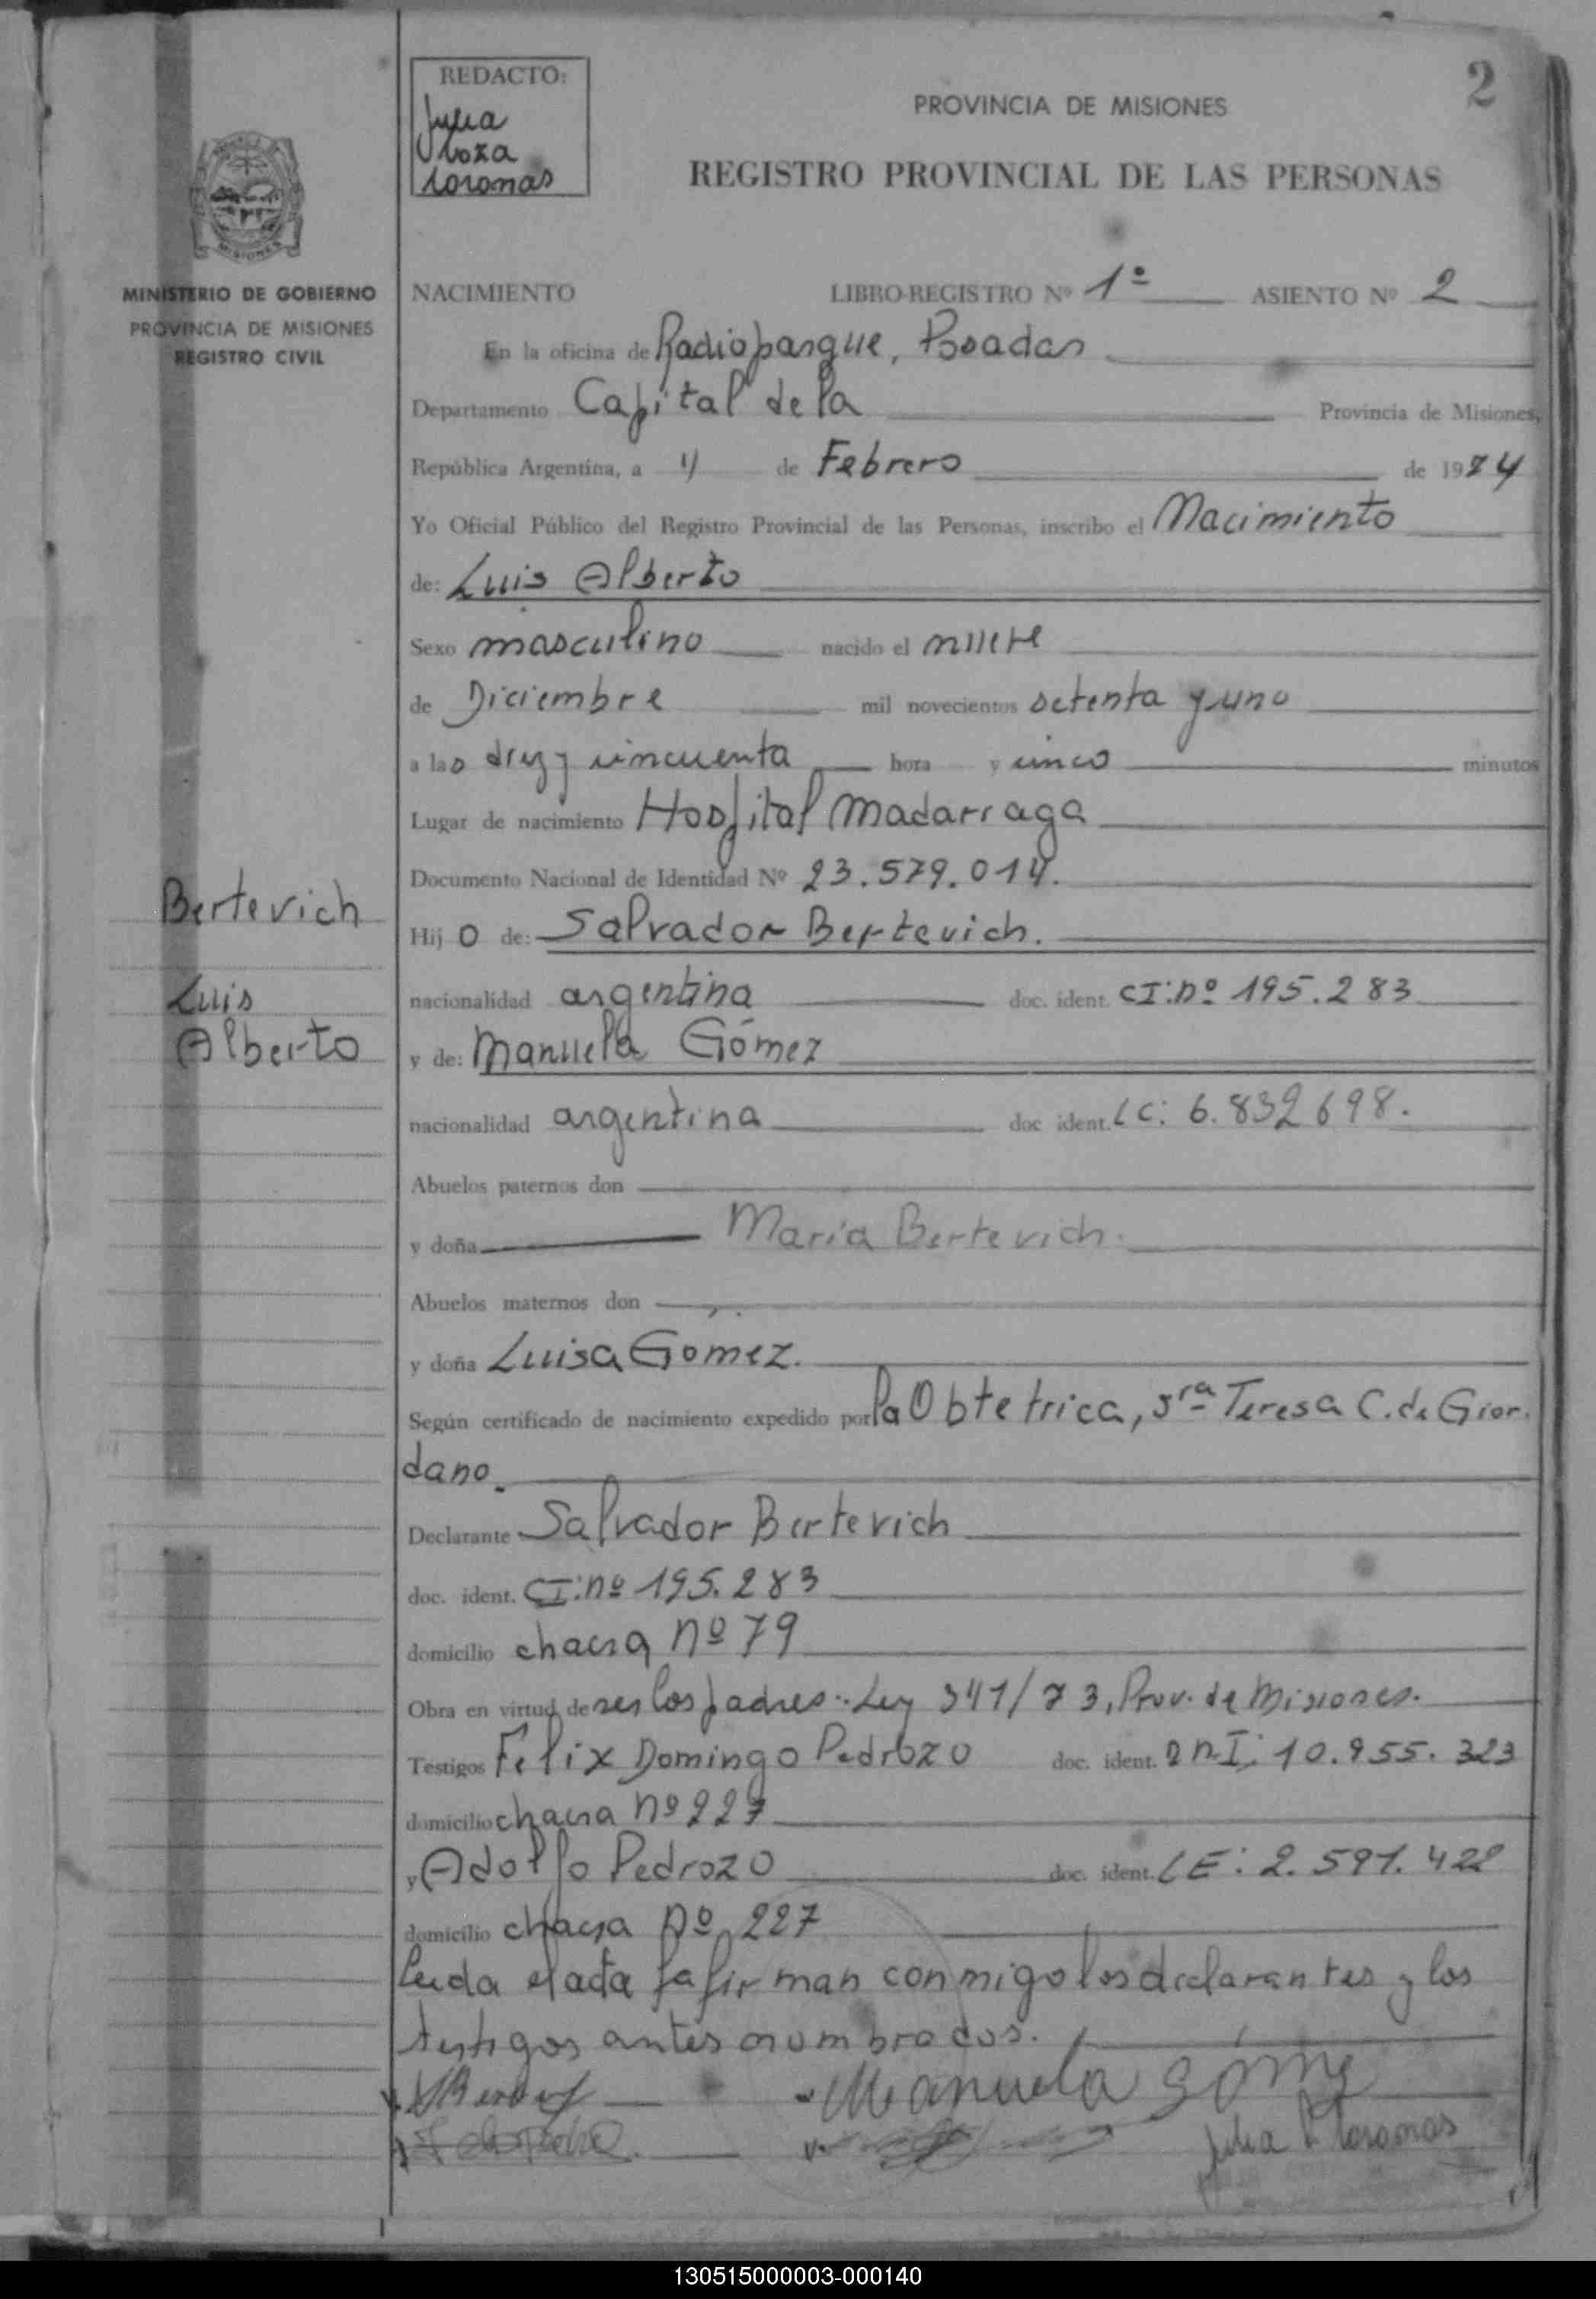 REDACTO:
Julia
Roza
Coronas
2
PROVINCIA DE MISIONES
REGISTRO PROVINCIAL DE LAS PERSONAS
MISIONES
MINISTERIO DE GOBIERNO
PROVINCIA DE MISIONES
REGISTRO CIVIL
NACIMIENTO LIBRO-REGISTRO Nº 1º ASIENTO Nº 2
En la oficina de Radioparque, Posadas
Departamento Capital de la Provincia de Misiones,
República Argentina, a 4 de Febrero de 1974
Yo Oficial Público del Registro Provincial de las Personas, inscribo el Nacimiento
de: Luis Alberto
Sexo masculino nacido el nueve
de Diciembre mil novecientos setenta y uno
a las diez y cincuenta hora y cinco minutos
Lugar de nacimiento Hospital Madarriaga
Documento Nacional de Identidad Nº 23.579.014.
Bertevich
Hij o de: Salvador Bertevich.
Luis
nacionalidad argentina doc. ident. CI: nº 195.283
Alberto
y de: Manuela Gómez
nacionalidad argentina doc ident. LC: 6.832698.
Abuelos paternos don
y doña María Bertevich.
Abuelos maternos don
y doña Luisa Gómez.
Según certificado de nacimiento expedido por la Obtetrica, Sra Teresa C. de Gior.
dano.
Declarante Salvador Bertevich
doc. ident. CI: nº 195.283
domicilio chacra nº 79
Obra en virtud de ser los padres.. Ley 341/73, Prov. de Misiones.
Testigos Félix Domingo Pedrozo doc. ident. DNI: 10.955.323
domicilio chacra nº 227
y Adolfo Pedrozo doc. ident. LE: 2.591.422
domicilio chacra nº 227
Leida el acta la firman conmigo los declarantes y los
testigos antes nombrados.
Manuela Gómez
Julia R Coronas
130515000003-000140